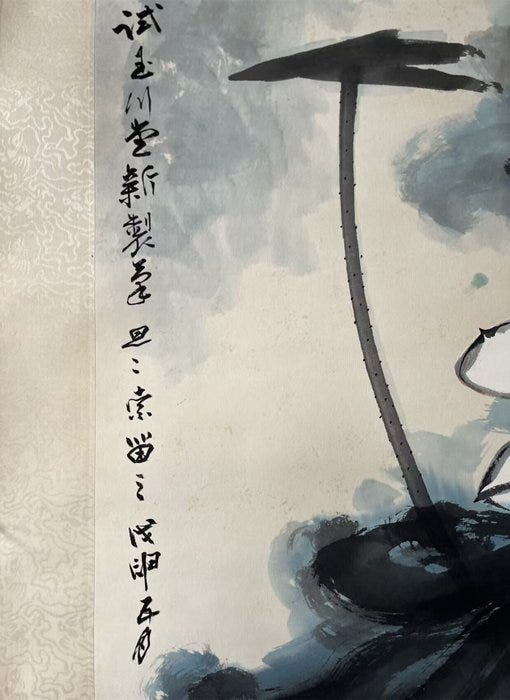 試玉川堂新製筆 索留之 戊申五月